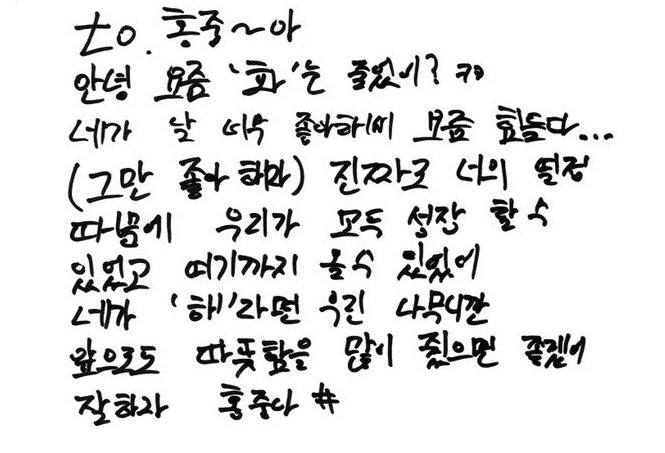 to. 홍중~아
안녕 요즘 '화'는 줄었어? ㅋㅋ
네가 날 너무 좋아해서 요즘 힘들다...
(그만 좋아 해라) 진짜로 너의 열정
때문에 우리가 모두 성장 할 수
있었고 여기까지 올 수 있었어
네가 '해'라면 우린 나무니깐
앞으로도 따뜻함을 많이 줬으면 좋겠어
잘하자 홍중아 #